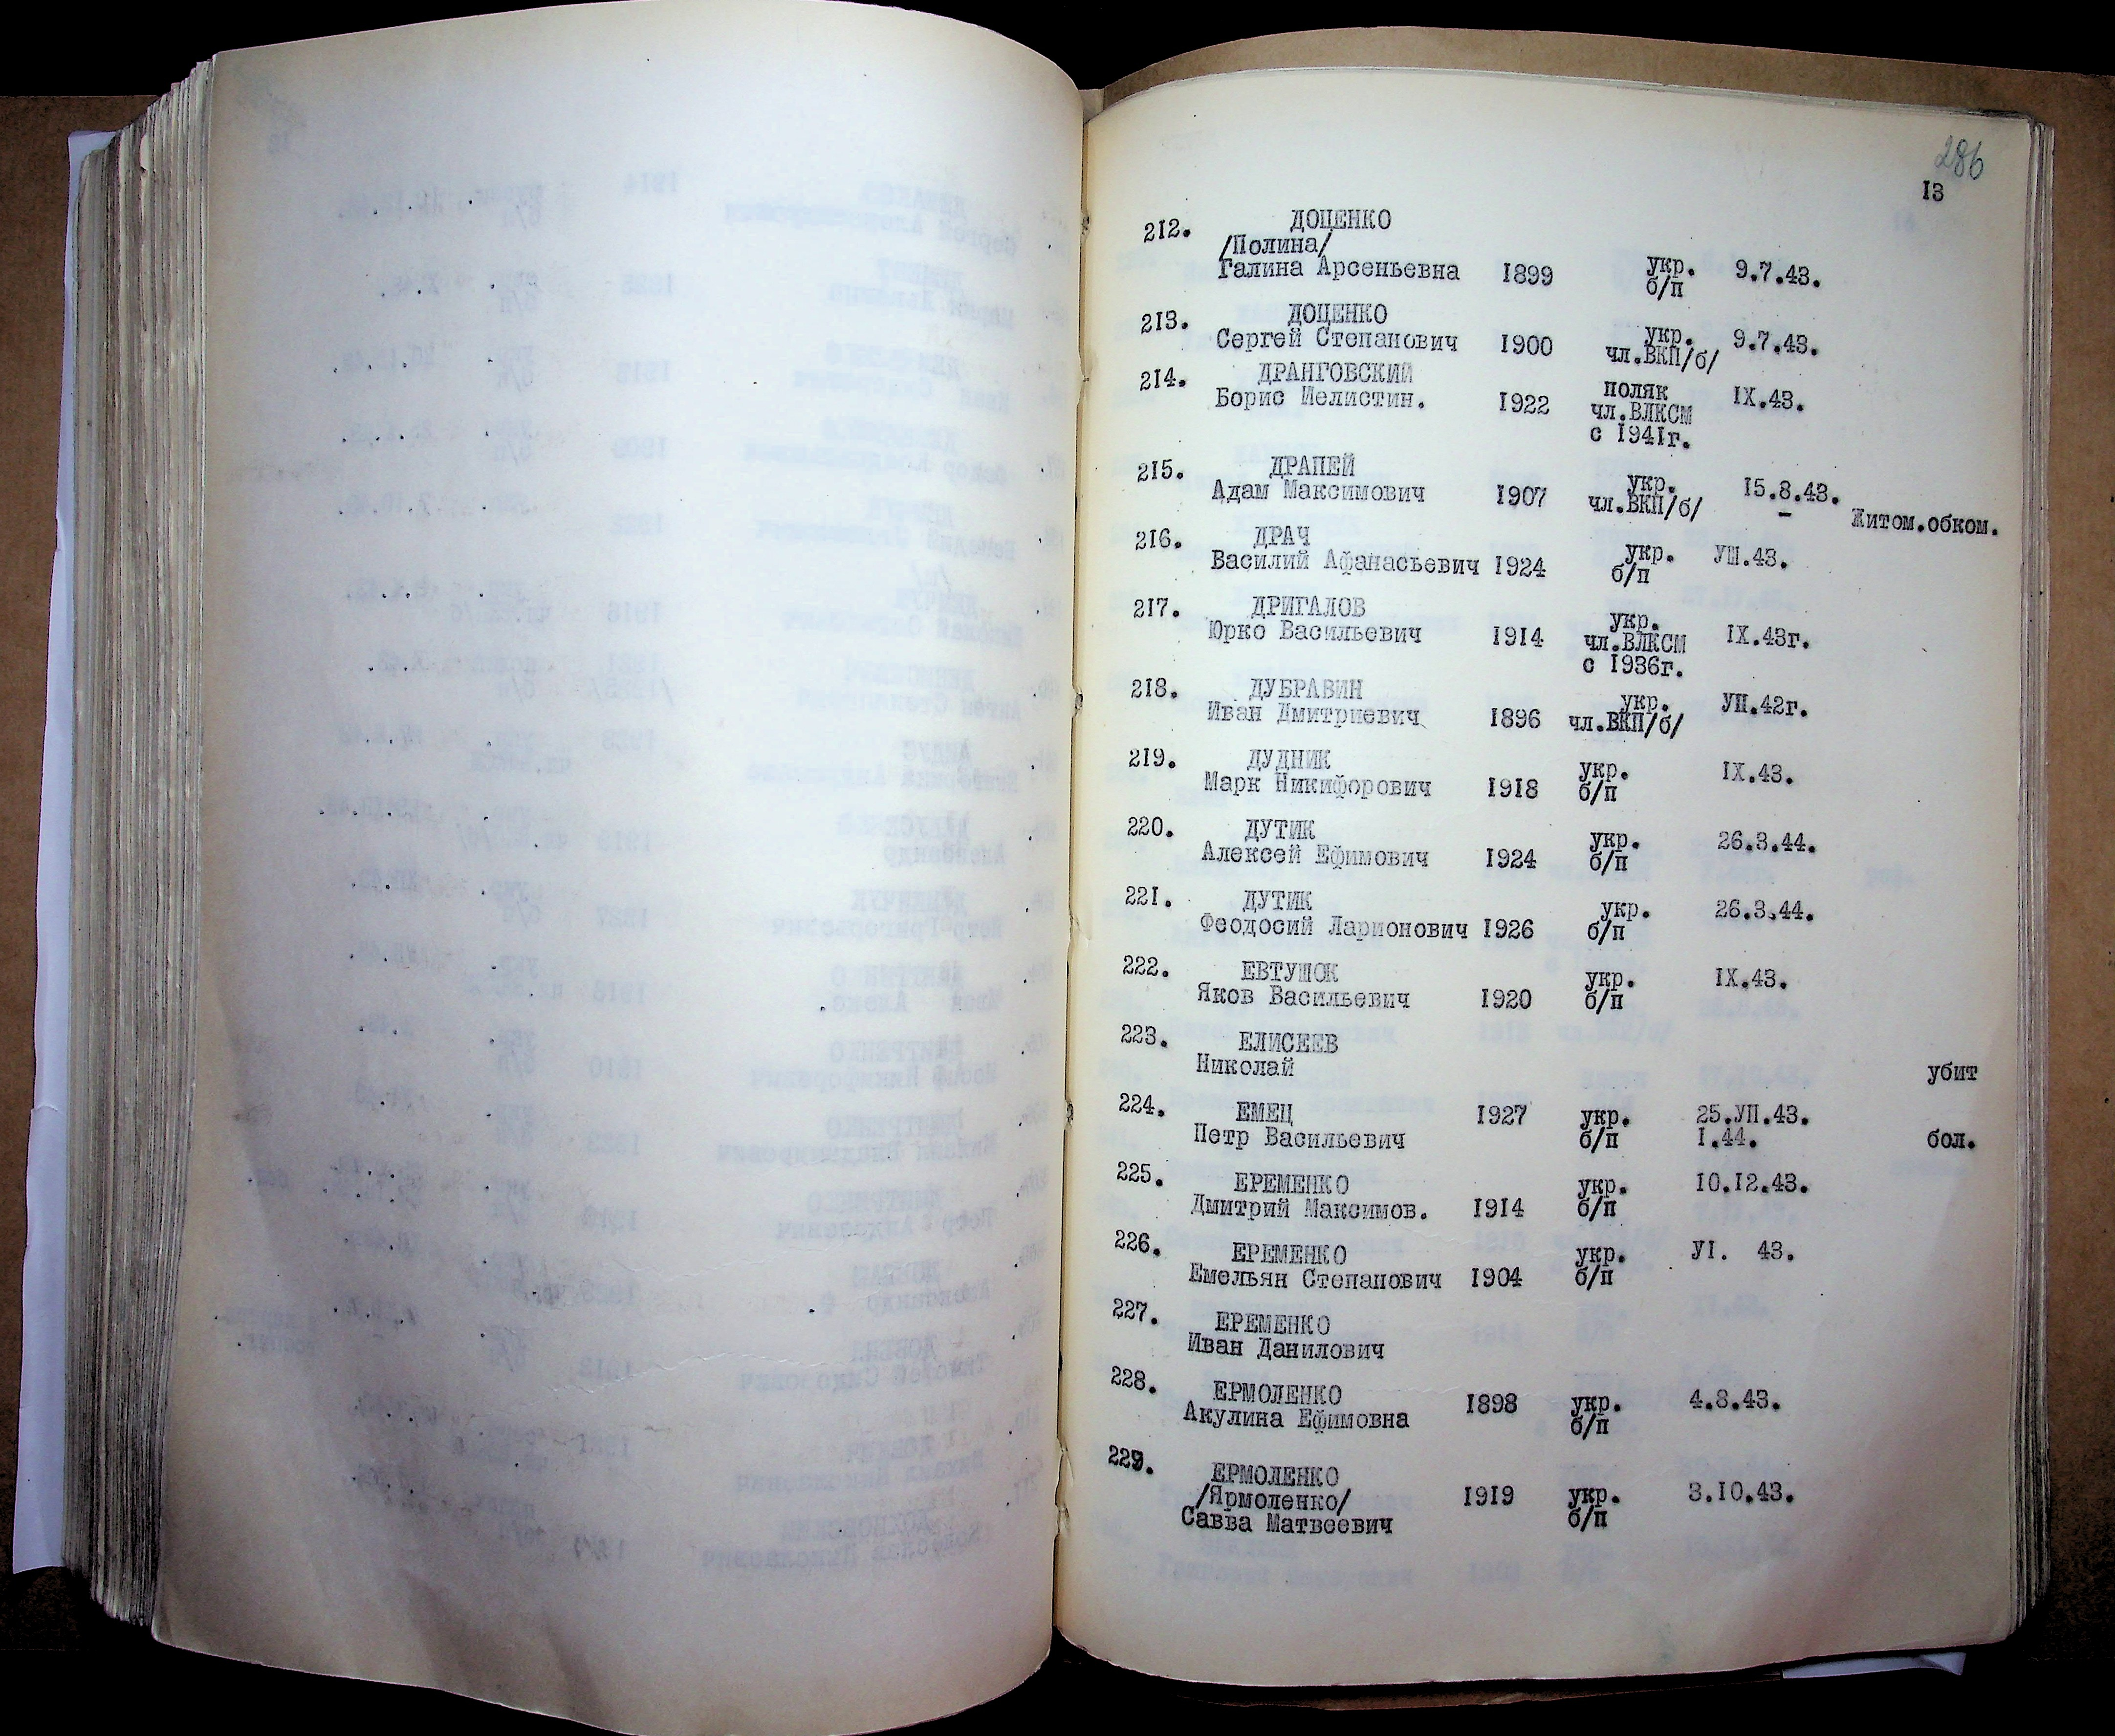 286
13
212. ДОЦЕНКО
/Полина/
Галина Арсеньевна 1899 укр. 9.7.43.
б/п
213. ДОЦЕНКО
Сергей Степанович 1900 укр. 9.7.43.
чл.ВКП/б/
214. ДРАНГОВСКИЙ
Борис Иелистин. 1922 поляк IX.43.
чл.ВЛКСМ
с 1941г.
215. ДРАПЕЙ
Адам Максимович 1907 укр. 15.8.43.
чл.ВКП/б/ – Житом.обком.
216. ДРАЧ
Василий Афанасьевич 1924 укр. УШ.43.
б/п
217. ДРИГАЛОВ
Юрко Васильевич 1914 укр. IX.43г.
чл.ВЛКСМ
с 1936г.
218. ДУБРАВИН
Иван Дмитриевич 1896 укр. УП.42г.
чл.ВКП/б/
219. ДУДНИК
Марк Никифорович 1918 укр. IX.43.
б/п
220. ДУТИК
Алексей Ефимович 1924 укр. 26.3.44.
б/п
221. ДУТИК
Феодосий Ларионович 1926 укр. 26.3.44.
б/п
222. ЕВТУШОК
Яков Васильевич 1920 укр. IX.43.
б/п
223. ЕЛИСЕЕВ
Николай убит
224. ЕМЕЦ 1927 укр. 25.УП.43.
Петр Васильевич б/п I.44. бол.
225. ЕРЕМЕНКО
Дмитрий Максимов. 1914 укр. 10.12.43.
б/п
226. ЕРЕМЕНКО
Емельян Степанович 1904 укр. УI. 43.
б/п
227. ЕРЕМЕНКО
Иван Данилович
228. ЕРМОЛЕНКО 1898 укр. 4.8.43.
Акулина Ефимовна б/п
229. ЕРМОЛЕНКО
/Ярмоленко/ 1919 укр. 3.10.43.
Савва Матвеевич б/п